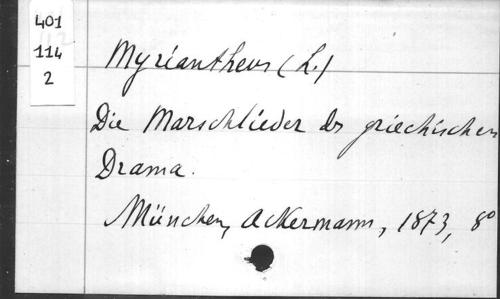 401
114
2
Myriantheus (L.)
Die Marschlieder des griechischen
Drama.
München, Ackermann, 1873, 8°